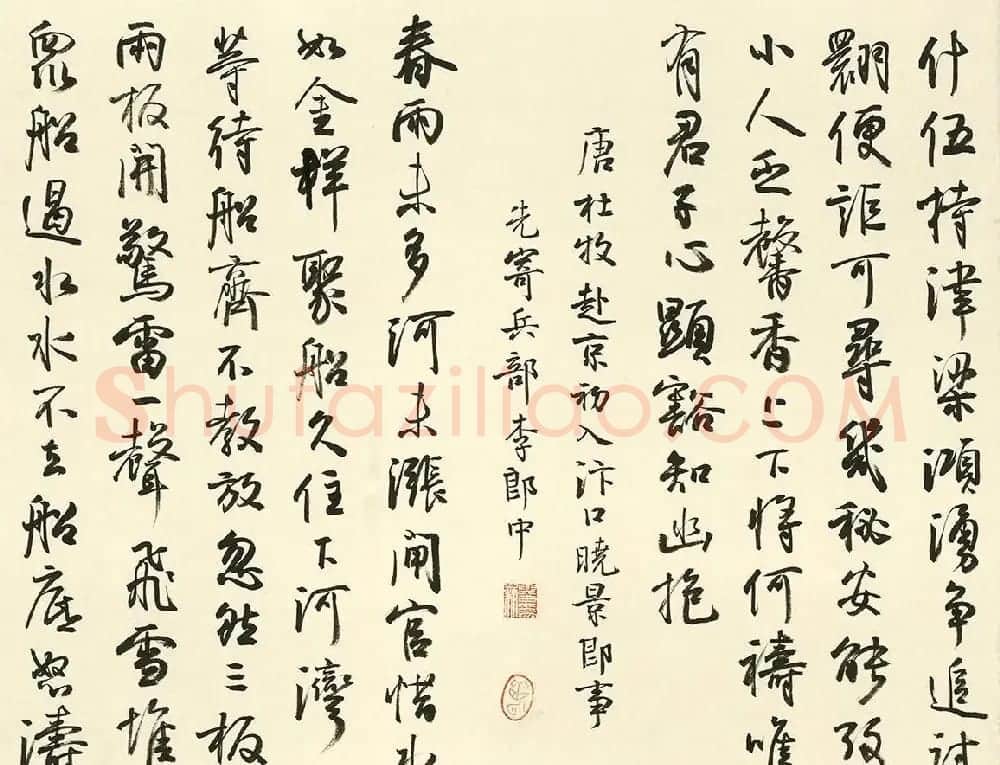 什伍持津梁澒湧争追討
翾便詎可尋幾秘安能
小人乏馨香上下将何禱唯
有君子心顯豁知幽抱
唐杜牧赴京初入汴口曉景即事
先寄兵部李郎中
春雨未多河未漲閘官惜水
如金樣聚船久住下河灣
等待船齊不教放忽然三板
兩板開驚雷一聲飛雪堆
衆船遏水水不去船底怒濤
Shufaziliao.COM